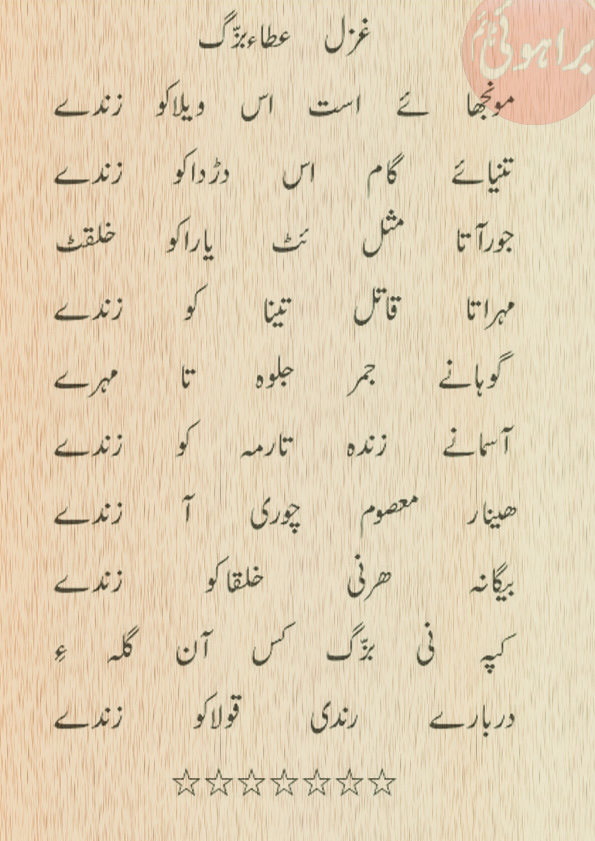 غزل عطاء بزّگ
براہوئی ٹائم
مونجھا ئے است اس ویلاکو زندے
تنیائے گام اس دڑداکو زندے
جورآتا مثل ئٹ یاراکو خلقٹ
مہراتا قاتل تینا کو زندے
گوہانے جمر جلوہ تا مہرے
آسمانے زندہ تارمہ کو زندے
ھینار معصوم چوری آ زندے
بیگانہ ھرنی خلقاکو زندے
کپہ نی بزّگ کس آن گلہ ءِ
دربارے رندی قولاکو زندے
☆☆☆☆☆☆☆